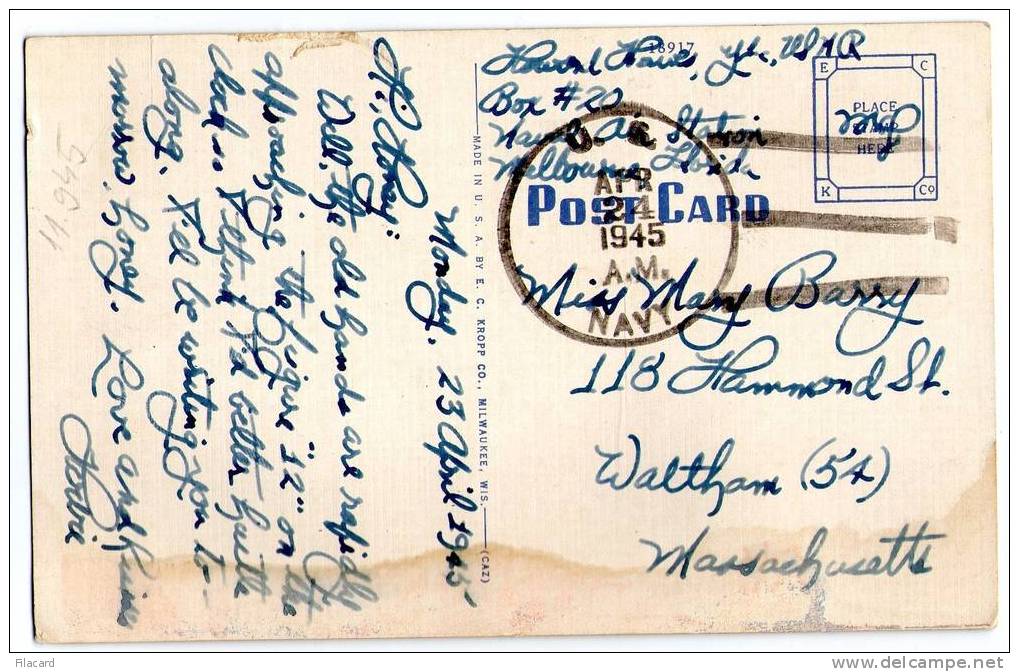 Monday, 23 April 1945
Hi, Honey:
Well, the old hands are rapidly
approaching the figure "12" on the
clock so I figure I'd better hustle
along. I'll be writing you to-
morrow, honey. Love and Kisses
Howie
11.945
MADE IN U. S. A. BY E. C. KROPP CO., MILWAUKEE, WIS. (CAZ)
18917
Howard Hawes, Y2c, USNR
Box #20
Naval Air Station
Melbourne, Florida
E C
PLACE
STAMP
HERE
K CO
U. S.
APR
24
1945
A.M.
NAVY
POST CARD
Miss Mary Barry
118 Hammond St.
Waltham (54)
Massachusetts
Filacard
www.delcampe.net